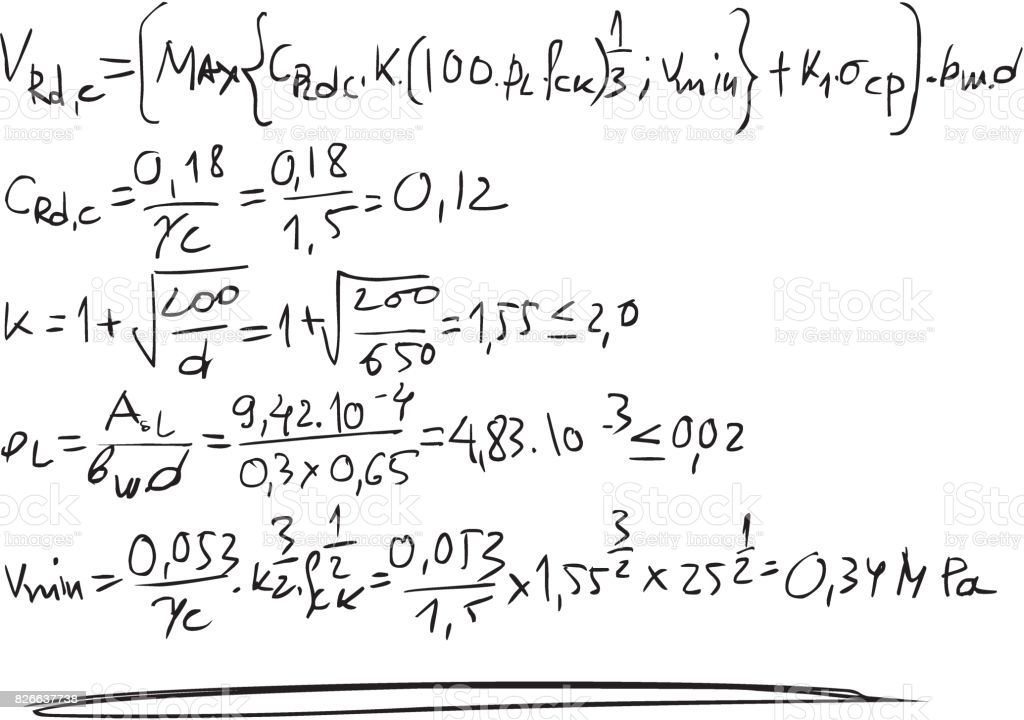 V_Rd,c = [MAX{C_Rd,c.K.(100.ρL.fck)^1/3; Vmin} + K1.σcp].bw.d
C_Rd,c = 0,18/γc = 0,18/1,5 = 0,12
K = 1+√(200/d) = 1+√(200/650) = 1,55 ≤ 2,0
ρL = AsL/bw.d = 9,42.10^-4/0,3×0,65 = 4,83.10^-3 ≤ 0,02
Vmin = 0,053/γc.K^3/2.fck^1/2 = 0,053/1,5 × 1,55^3/2 × 25^1/2 = 0,34 MPa
iStock
by Getty Images™
826637738